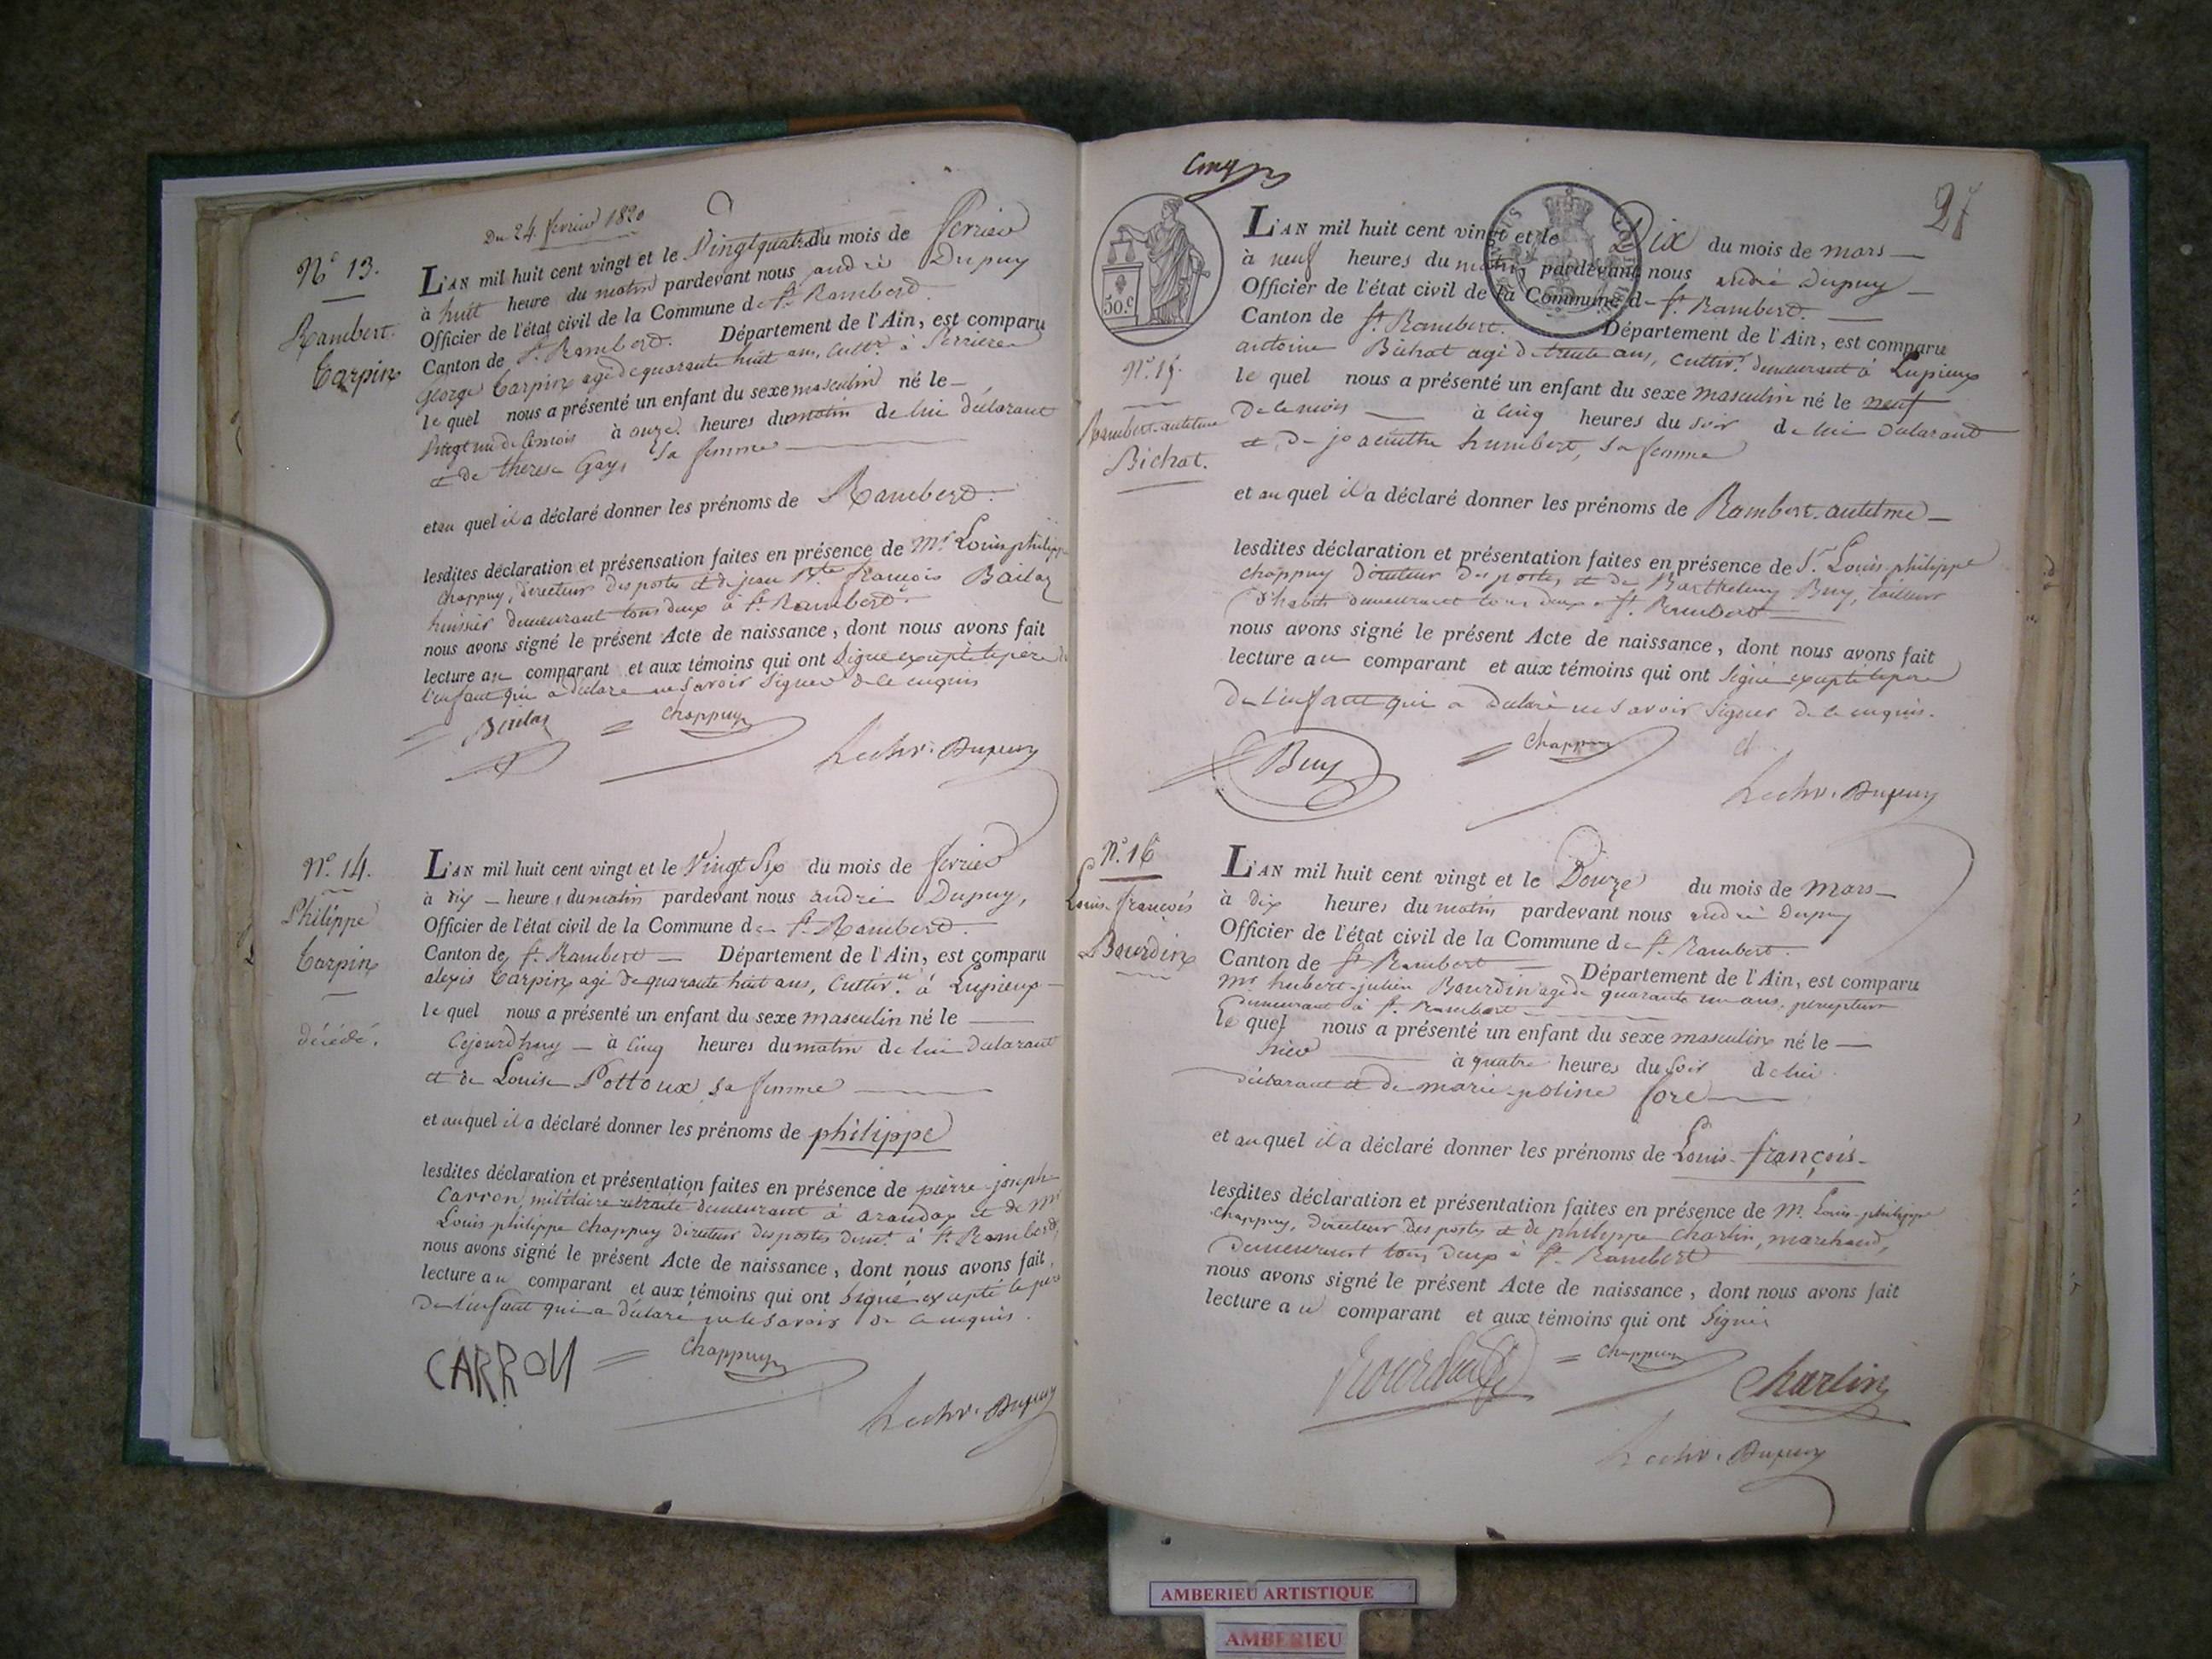 Du 24 fevrier 1820
N° 13.
Rambert.
Carpin
L'AN mil huit cent vingt et le Vingtquatre du mois de fevrier
à huit heure du matin pardevant nous andré Dupuy
Officier de l'état civil de la Commune de St. Rambert.
Canton de St. Rambert. Département de l'Ain, est comparu
George Carpin agé de quarante huit ans, cultr. à Serrieres
le quel nous a présenté un enfant du sexe masculin né le
Vingt un de ce mois à onze heures du matin de lui déclarant
et de therese Gay, sa femme
et au quel il a déclaré donner les prénoms de Rambert.
lesdites déclaration et présensation faites en présence de Mr. Louis philippe
Chappuy, directeur des postes et de jean Bte. françois Bailas
huissier demeurant tous deux à St. Rambert.
nous avons signé le présent Acte de naissance, dont nous avons fait
lecture au comparant et aux témoins qui ont Signé excepté le père de
l'enfant qui a déclaré ne savoir signer de ce enquis
Chappuy
Dupuy
N°. 14.
Philippe
Carpin
décédé.
L'AN mil huit cent vingt et le Vingt Six du mois de fevrier
à dix heures du matin pardevant nous andré Dupuy,
Officier de l'état civil de la Commune de St. Rambert.
Canton de St. Rambert Département de l'Ain, est comparu
alexis Carpin agé de quarante huit ans, Cultivr. à Lupieux
le quel nous a présenté un enfant du sexe masculin né le
Cejourdhuy à Cinq heures du matin de lui déclarant
et de Louise Pottoux sa femme
et au quel il a déclaré donner les prénoms de philippe
lesdites déclaration et présentation faites en présence de pierre joseph
Carron, militaire retraité demeurant à arandas et de Mr
Louis philippe Chappuy directeur des postes demt. à St. Rambert,
nous avons signé le présent Acte de naissance, dont nous avons fait
lecture au comparant et aux témoins qui ont Signé excepté le père
de l'enfant qui a déclaré ne le savoir de ce enquis.
CARRON
Chappuy
Dupuy
27
50.c
L'AN mil huit cent vingt et le Dix du mois de mars
à neuf heures du matin pardevant nous andré Dupuy
Officier de l'état civil de la Commune de St. Rambert.
Canton de St. Rambert. Département de l'Ain, est comparu
antoine Bichat agé de trente ans, cultivr. demeurant à Lupieux
N°. 15.
Rambert-antelme
Bichat.
le quel nous a présenté un enfant du sexe masculin né le neuf
de ce mois à cinq heures du soir de lui déclarant
et de jacinthe humbert, sa femme
et au quel il a déclaré donner les prénoms de Rambert-antelme
lesdites déclaration et présentation faites en présence de Sr. Louis-philippe
chappuy directeur des postes et de Barthelemy Buy, tailleur
d'habits demeurant tous deux à St. Rambert
nous avons signé le présent Acte de naissance, dont nous avons fait
lecture au comparant et aux témoins qui ont Signé excepté le père
de l'enfant qui a déclaré ne savoir signer de ce enquis.
Buy
Chappuy
Dupuy
N°. 16
Louis-francois
Bourdin
L'AN mil huit cent vingt et le Douze du mois de mars
à dix heures du matin pardevant nous andré Dupuy
Officier de l'état civil de la Commune de St. Rambert.
Canton de St. Rambert Département de l'Ain, est comparu
Mr hubert-julien Bourdin agé de quarante un ans, percepteur
demeurant à St. Rambert
le quel nous a présenté un enfant du sexe masculin né le
hier à quatre heures du soir de lui
déclarant et de marie-poline fore
et au quel il a déclaré donner les prénoms de Louis-françois-
lesdites déclaration et présentation faites en présence de Mr. Louis-philippe
chappuy, directeur des postes et de philippe charlin, marchand,
demeurant tous deux à St. Rambert
nous avons signé le présent Acte de naissance, dont nous avons fait
lecture au comparant et aux témoins qui ont Signé
Chappuy
Charlin
Dupuy
AMBERIEU ARTISTIQUE
AMBERIEU